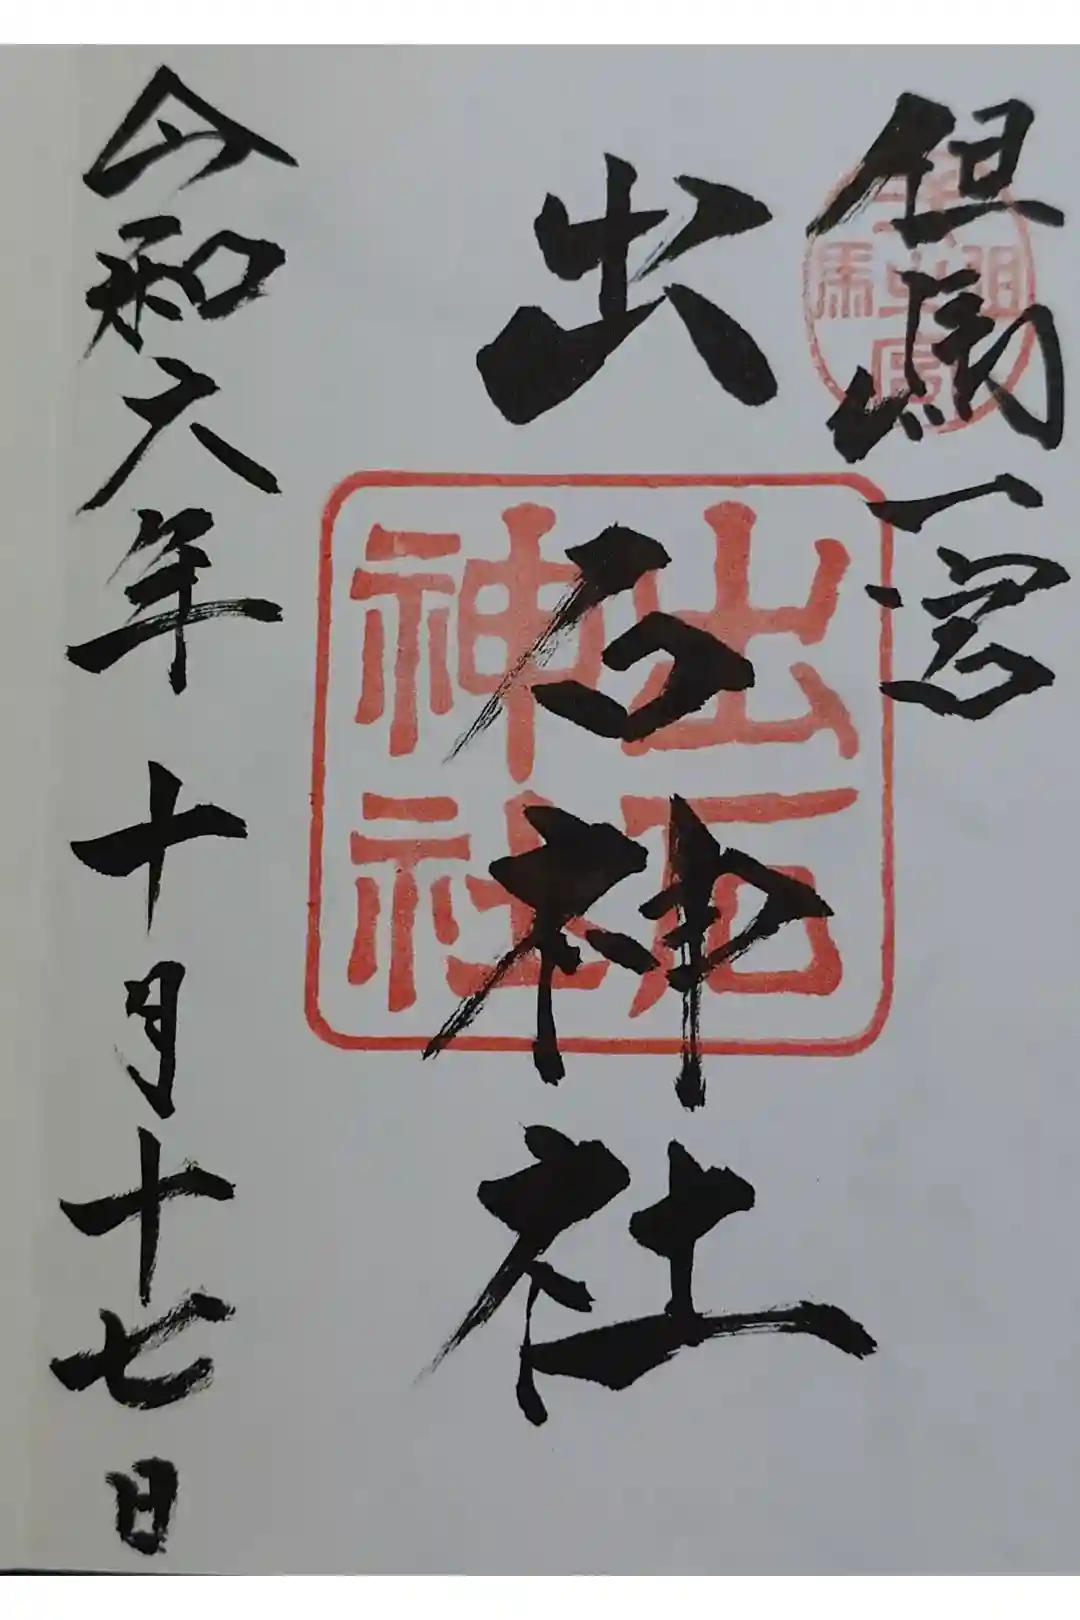 但馬一宮
出石神社
出石
神社
令和六年十月十七日